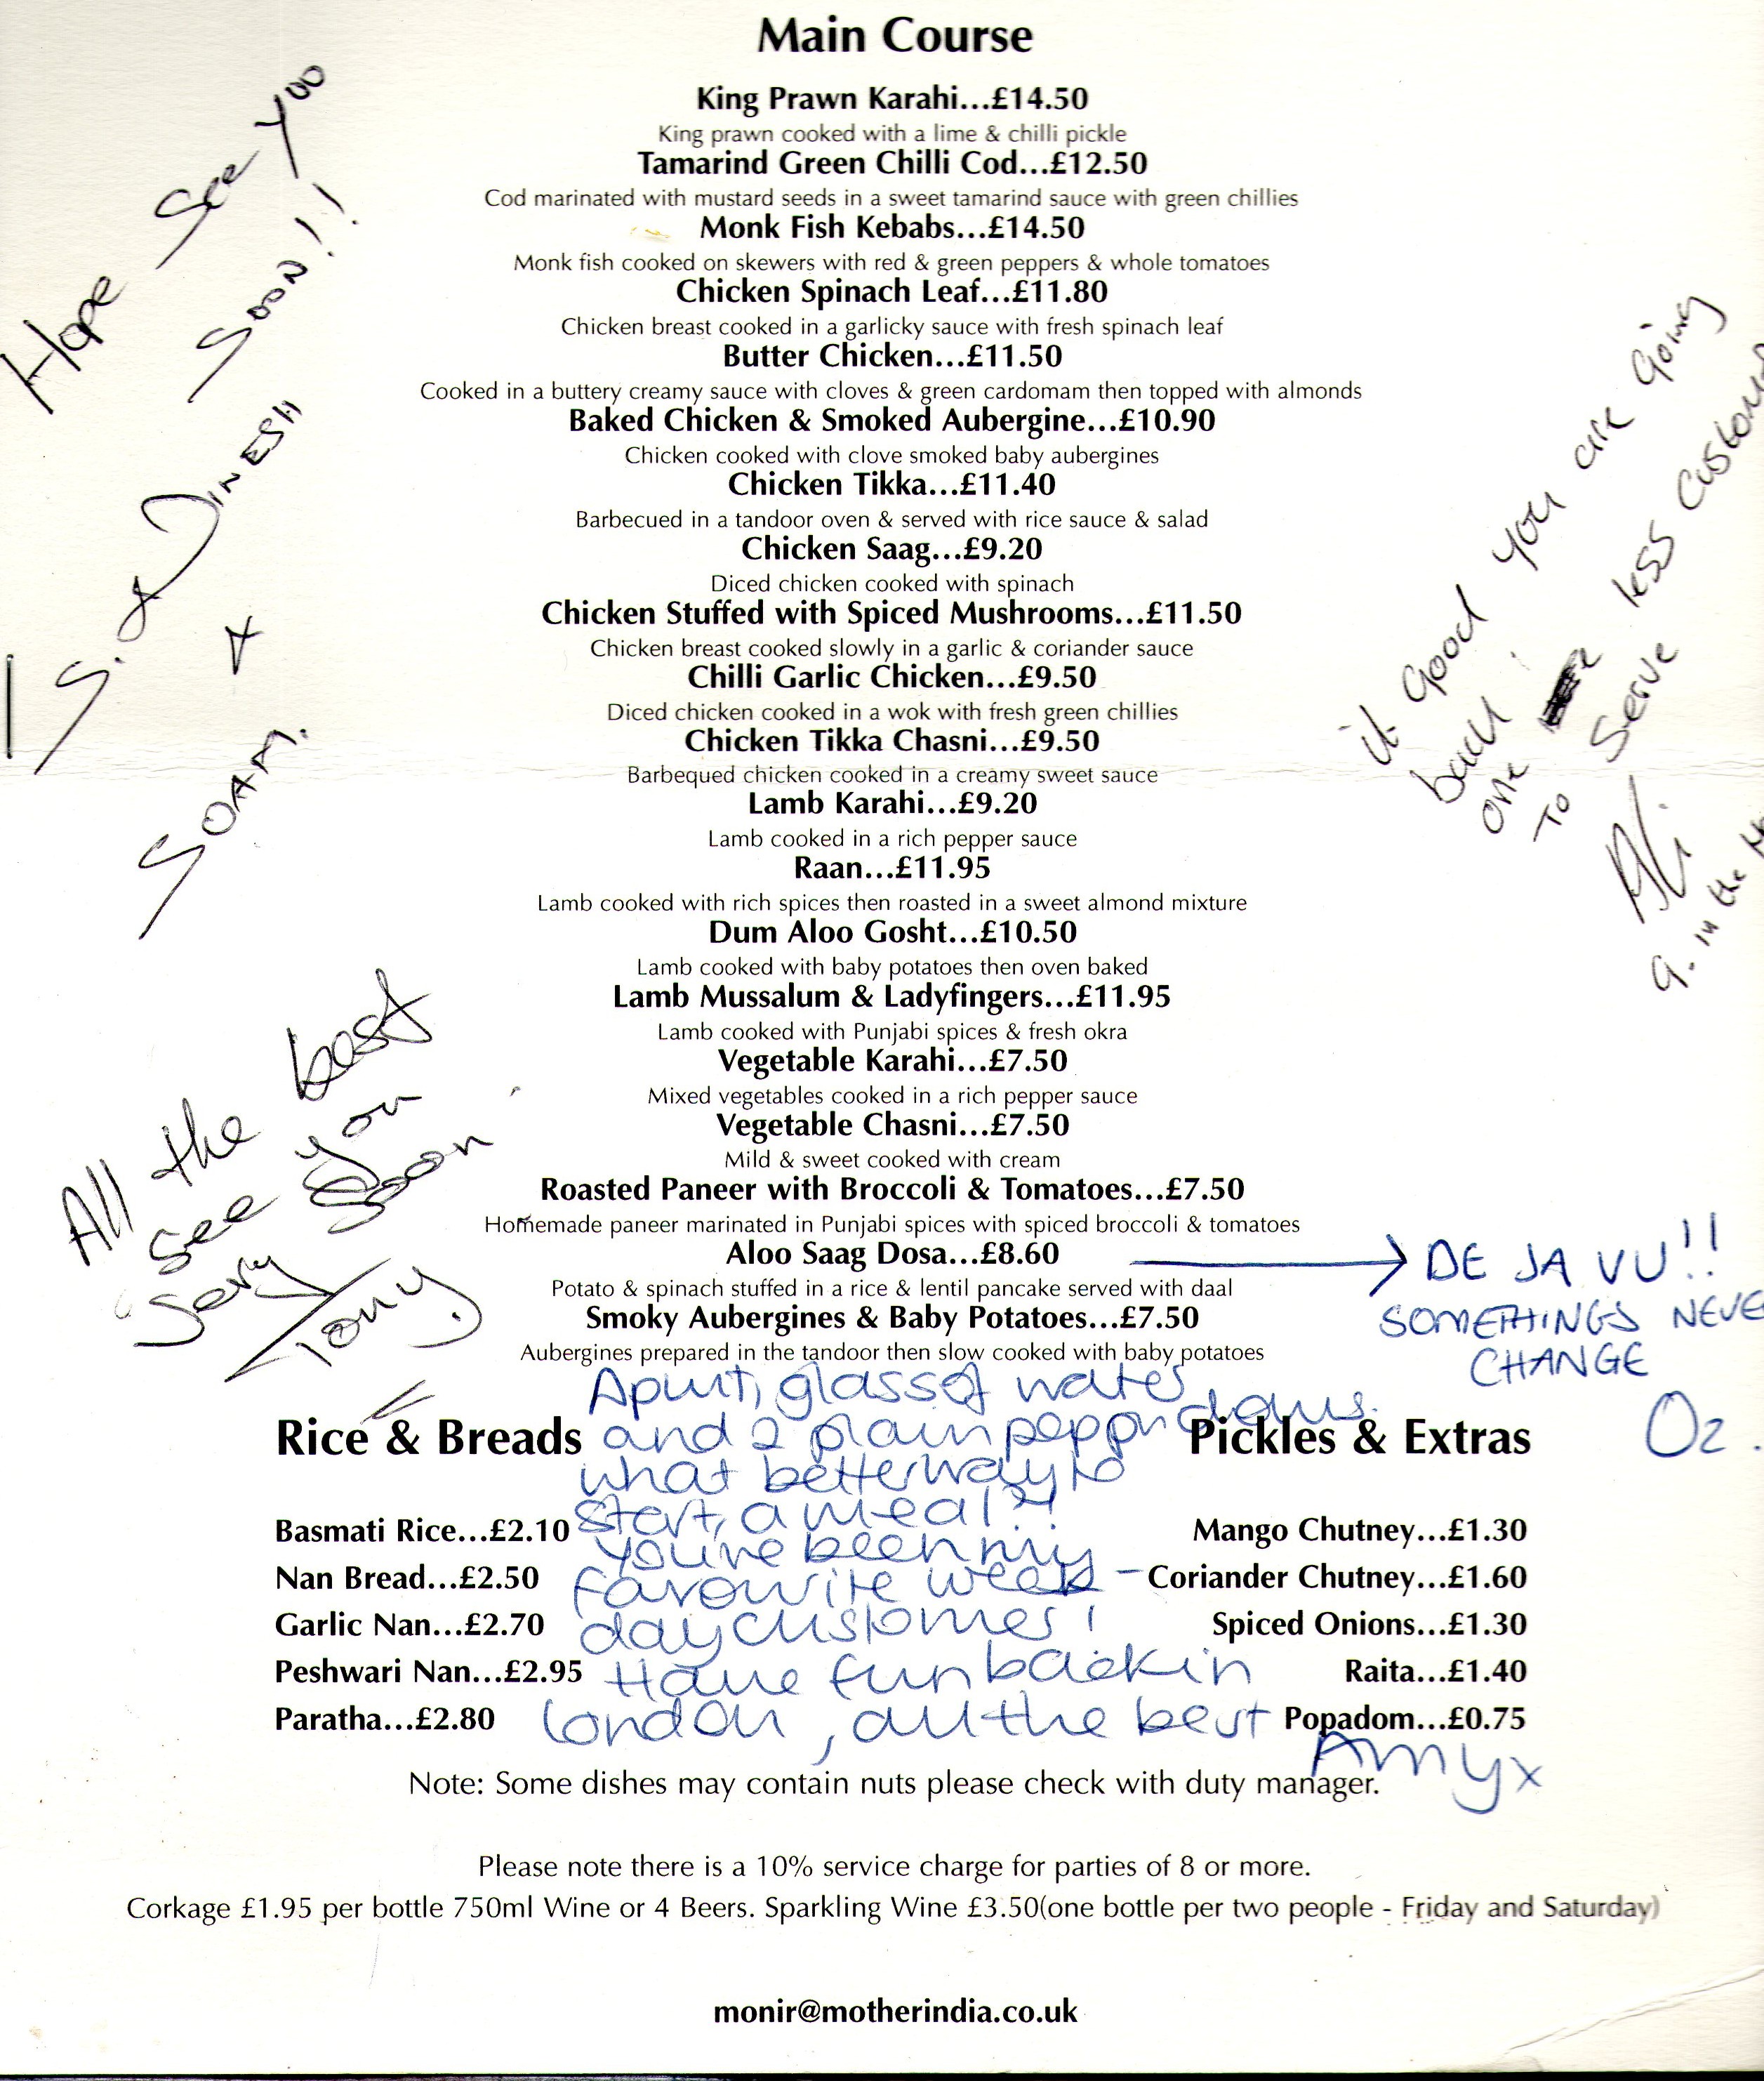 Main Course
King Prawn Karahi...£14.50
King prawn cooked with a lime & chilli pickle
Tamarind Green Chilli Cod...£12.50
Cod marinated with mustard seeds in a sweet tamarind sauce with green chillies
Monk Fish Kebabs...£14.50
Monk fish cooked on skewers with red & green peppers & whole tomatoes
Chicken Spinach Leaf...£11.80
Chicken breast cooked in a garlicky sauce with fresh spinach leaf
Butter Chicken...£11.50
Cooked in a buttery creamy sauce with cloves & green cardomam then topped with almonds
Baked Chicken & Smoked Aubergine...£10.90
Chicken cooked with clove smoked baby aubergines
Chicken Tikka...£11.40
Barbecued in a tandoor oven & served with rice sauce & salad
Chicken Saag...£9.20
Diced chicken cooked with spinach
Chicken Stuffed with Spiced Mushrooms...£11.50
Chicken breast cooked slowly in a garlic & coriander sauce
Chilli Garlic Chicken...£9.50
Diced chicken cooked in a wok with fresh green chillies
Chicken Tikka Chasni...£9.50
Barbequed chicken cooked in a creamy sweet sauce
Lamb Karahi...£9.20
Lamb cooked in a rich pepper sauce
Raan...£11.95
Lamb cooked with rich spices then roasted in a sweet almond mixture
Dum Aloo Gosht...£10.50
Lamb cooked with baby potatoes then oven baked
Lamb Mussalum & Ladyfingers...£11.95
Lamb cooked with Punjabi spices & fresh okra
Vegetable Karahi...£7.50
Mixed vegetables cooked in a rich pepper sauce
Vegetable Chasni...£7.50
Mild & sweet cooked with cream
Roasted Paneer with Broccoli & Tomatoes...£7.50
Homemade paneer marinated in Punjabi spices with spiced broccoli & tomatoes
Aloo Saag Dosa...£8.60
Potato & spinach stuffed in a rice & lentil pancake served with daal
Smoky Aubergines & Baby Potatoes...£7.50
Aubergines prepared in the tandoor then slow cooked with baby potatoes
Hope See You
Soon!!
DINESH
+
SOAM.
All the best
see you
Soon
Tony
it good you are going
back!
one less
To Serve
Ali
in the
DE JA VU!!
SOMETHINGS NEVE
CHANGE
Oz.
A pint, glass of water
and 2 plain poppadoms.
what better way to
start, a meal?!
You've been my
favourite week-
day customer!
Have fun back in
London, all the best
Amy x
Rice & Breads
Basmati Rice...£2.10
Nan Bread...£2.50
Garlic Nan...£2.70
Peshwari Nan...£2.95
Paratha...£2.80
Pickles & Extras
Mango Chutney...£1.30
Coriander Chutney...£1.60
Spiced Onions...£1.30
Raita...£1.40
Popadom...£0.75
Note: Some dishes may contain nuts please check with duty manager.
Please note there is a 10% service charge for parties of 8 or more.
Corkage £1.95 per bottle 750ml Wine or 4 Beers. Sparkling Wine £3.50(one bottle per two people - Friday and Saturday)
monir@motherindia.co.uk